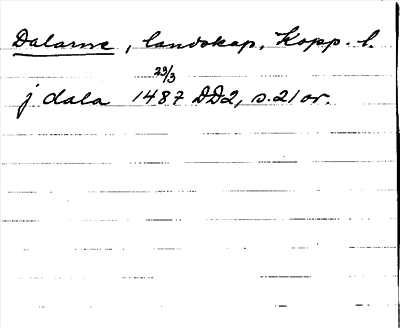 Dalarne, landskap, Kopp. l.
23/3
j dala 1487 DD2, s.21 or.